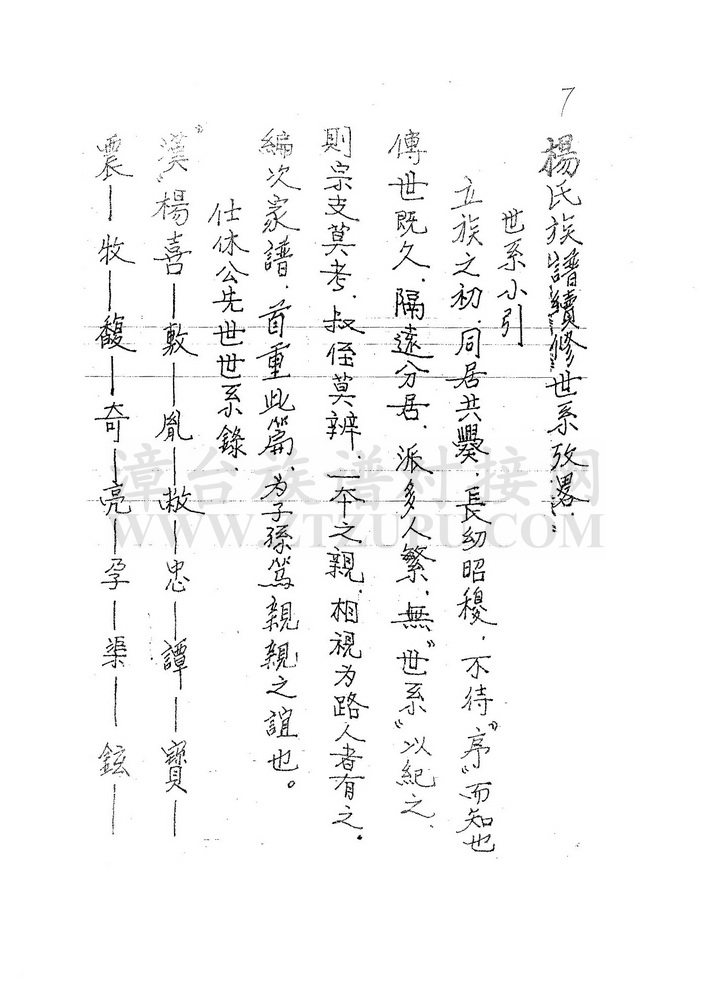 7
楊氏族譜續修世系攷畧
世系小引
立族之初．同居共爨．長幼昭穆．不待"序"而知也
傳世既久．隔遠分居．派多人繁．無"世系"以紀之．
則宗支莫考．叔侄莫辨．一本之親．相視为路人者有之．
編次家譜．首重此篇．为子孫篤親親之誼也。
仕休公先世世系錄．
"漢"楊喜—敷—胤—敞—忠—譚—寶—
震—牧—馥—奇—亮—孕—渠—鉉—
漳台族谱对接网
WWW.ZTZUPU.COM